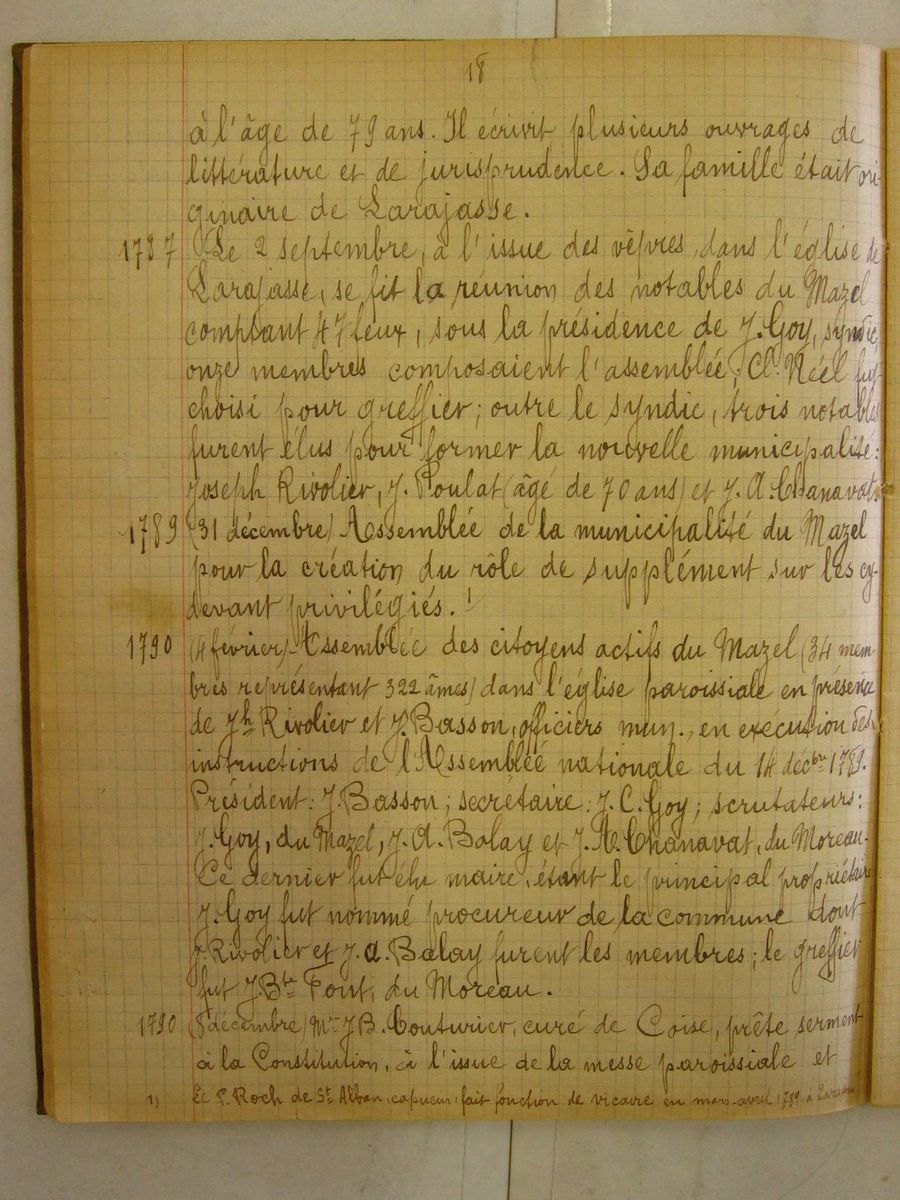 18
à l'âge de 79 ans. Il écrivit plusieurs ouvrages de
littérature et de jurisprudence. Sa famille était ori-
ginaire de Larajasse.
1787 Le 2 septembre, à l'issue des vêpres, dans l'église de
Larajasse, se fit la réunion des notables du Mazel
comptant 47 feux, sous la présidence de J. Goy, syndic,
onze membres composaient l'assemblée; Cl. Néel fut
choisi pour greffier; outre le syndic, trois notables
furent élus pour former la nouvelle municipalité:
Joseph Rivolier, J. Poulat (âgé de 70 ans) et J. A. Chanavat.
1789 (31 décembre) Assemblée de la municipalité du Mazel
pour la création du rôle de supplément sur les cy-
devant privilégiés. 1
1790 (4 février) Assemblée des citoyens actifs du Mazel (34 mem-
bres représentant 322 âmes) dans l'église paroissiale en présence
de Jh Rivolier et J. Basson, officiers mun., en exécution des
instructions de l'Assemblée nationale du 14 décbre 1789.
Président: J. Basson; secrétaire: J. C. Goy; scrutateurs:
J. Goy, du Mazel, J. A. Balay et J. A. Chanavat, du Moreau.
Ce dernier fut élu maire, étant le principal propriétaire
J. Goy fut nommé procureur de la commune dont
J. Rivolier et J. A. Balay furent les membres; le greffier
fut J. Bte Font, du Moreau.
1790 (5 décembre) Mr J B. Couturier, curé de Coise, prête serment
à la Constitution, à l'issue de la messe paroissiale et
1) Le P. Roch de St Alban, capucin, fait fonction de vicaire en mars-avril 1789 à